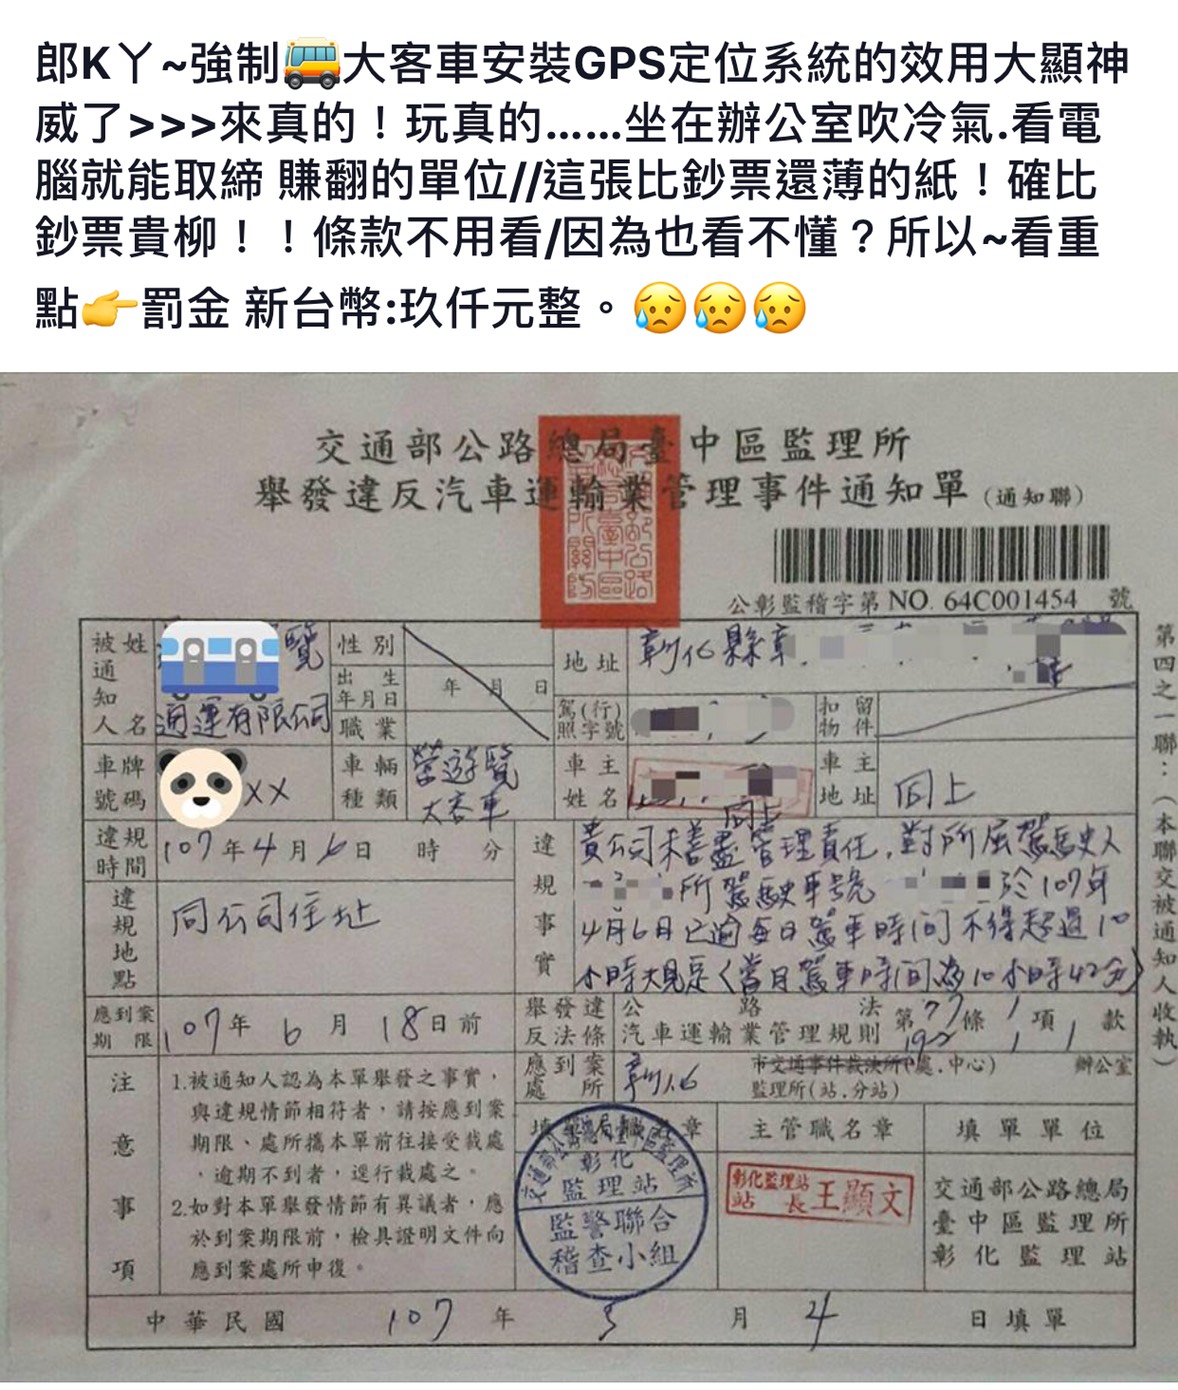 郎K丫~強制🚌大客車安裝GPS定位系統的效用大顯神
威了>>>來真的！玩真的……坐在辦公室吹冷氣.看電
腦就能取締 賺翻的單位//這張比鈔票還薄的紙！確比
鈔票貴柳！！條款不用看/因為也看不懂？所以~看重
點👉罰金 新台幣:玖仟元整。😥😥😥
交通部公路總局臺中區監理所
舉發違反汽車運輸業管理事件通知單(通知聯)
公彰監稽字第 NO. 64C001454 號
被通知人 姓名
覽
通運有限公司
性別
出生年月日
年 月 日
職業
地址
彰化縣
駕(行)照字號
扣留物件
車牌號碼
XX
車輛種類
營遊覽
大客車
車主姓名
同上
車主地址
同上
違規時間
107年4月6日 時 分
違規地點
同公司住址
違規事實
貴公司未善盡管理責任,對所屬駕駛人
所駕駛車號 於107年
4月6日已逾每日駕車時間不得超過10
小時規定(當日駕車時間為10小時42分)
應到案期限
107年6月18日前
舉發違反法條
公路法 第77條1項 款
汽車運輸業管理規則
應到案處所
彰化
市交通事件裁決所(處.中心)
監理所(站.分站)
辦公室
注意事項
1.被通知人認為本單舉發之事實,
與違規情節相符者,請按應到案
期限、處所攜本單前往接受裁處
,逾期不到者,逕行裁處之。
2.如對本單舉發情節有異議者,應
於到案期限前,檢具證明文件向
應到案處所申復。
主管職名章
填單單位
彰化
監理站
監警聯合
稽查小組
彰化監理站
站長王顯文
交通部公路總局
臺中區監理所
彰化監理站
中華民國 107 年 5 月 4 日填單
第四之一聯:(本聯交被通知人收執)